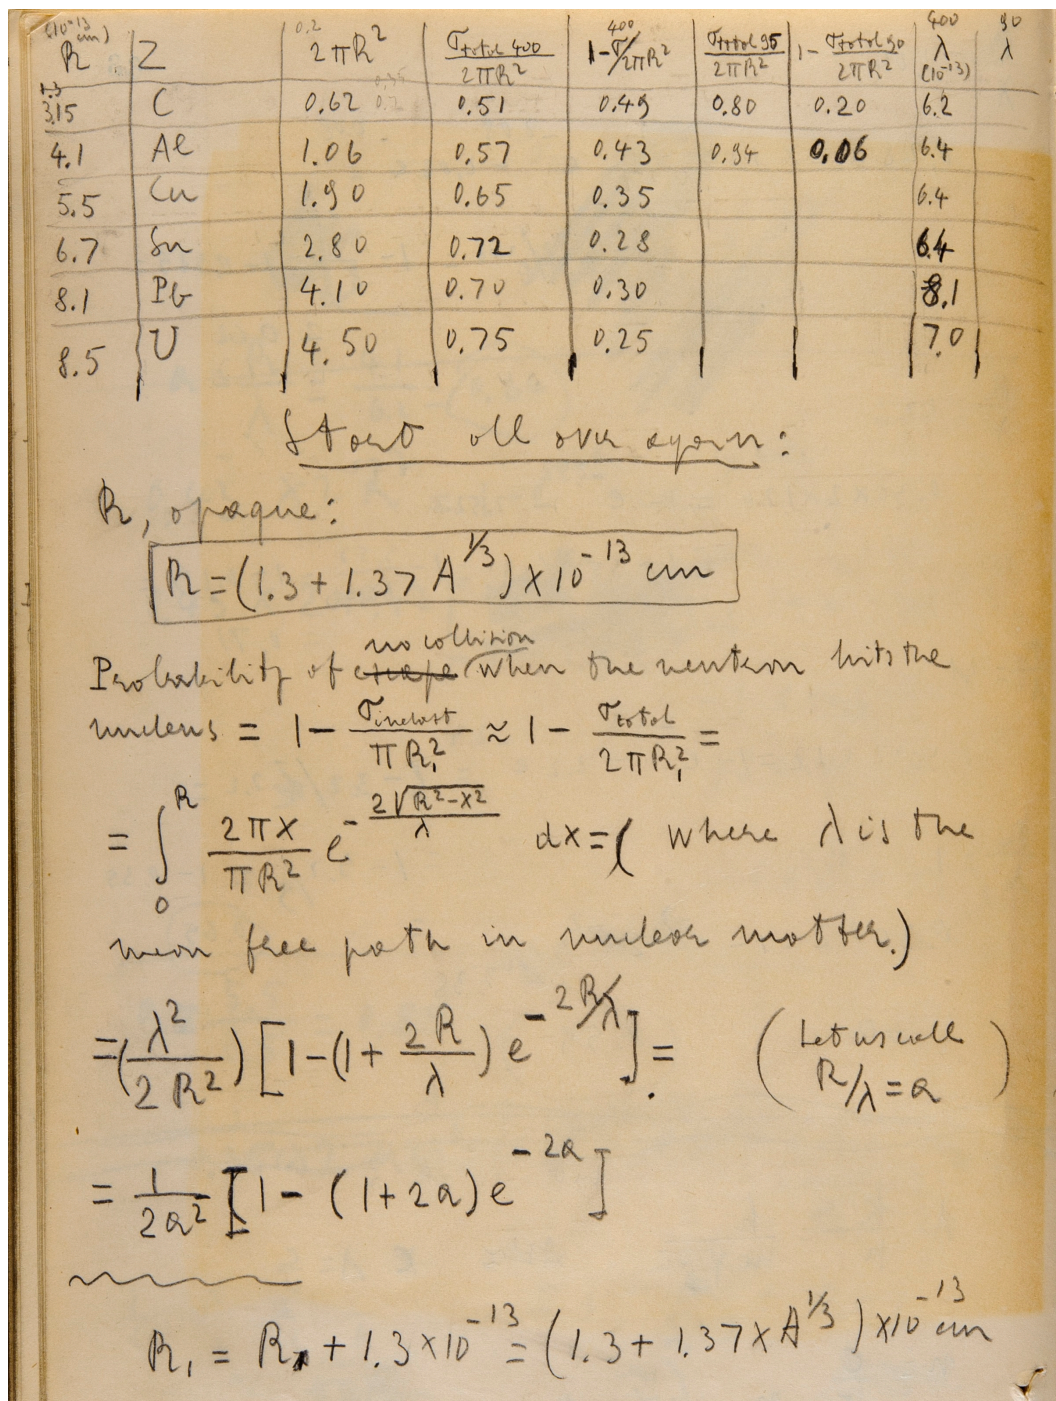 (10⁻¹³ cm) 0.2 400 400 90
R Z 2πR² σtotal 400/2πR² 1-σ/2πR² σtotal 95/2πR² 1-σtotal 90/2πR² λ (10⁻¹³) λ
3.15 C 0.62 0.51 0.49 0.80 0.20 6.2
4.1 Al 1.06 0.57 0.43 0.94 0.06 6.4
5.5 Cu 1.90 0.65 0.35 6.4
6.7 Sn 2.80 0.72 0.28 6.4
8.1 Pb 4.10 0.70 0.30 8.1
8.5 U 4.50 0.75 0.25 7.0
Start all over again:
R, opaque:
R = (1.3 + 1.37 A^1/3) × 10⁻¹³ cm
no collision
Probability of escape when the neutron hits the
nucleus = 1 - σinelast/πR₁² ≈ 1 - σtotal/2πR₁² =
= ∫₀ᴿ 2πx/πR² e^(-2√(R²-x²)/λ) dx = ( where λ is the
mean free path in nuclear matter.)
= (λ²/2R²) [1-(1+ 2R/λ) e^(-2R/λ)]. = (Let us call R/λ = a)
= 1/2a² [1 - (1+2a) e^(-2a)]
R₁ = R + 1.3 × 10⁻¹³ = (1.3 + 1.37 × A^1/3) × 10⁻¹³ cm